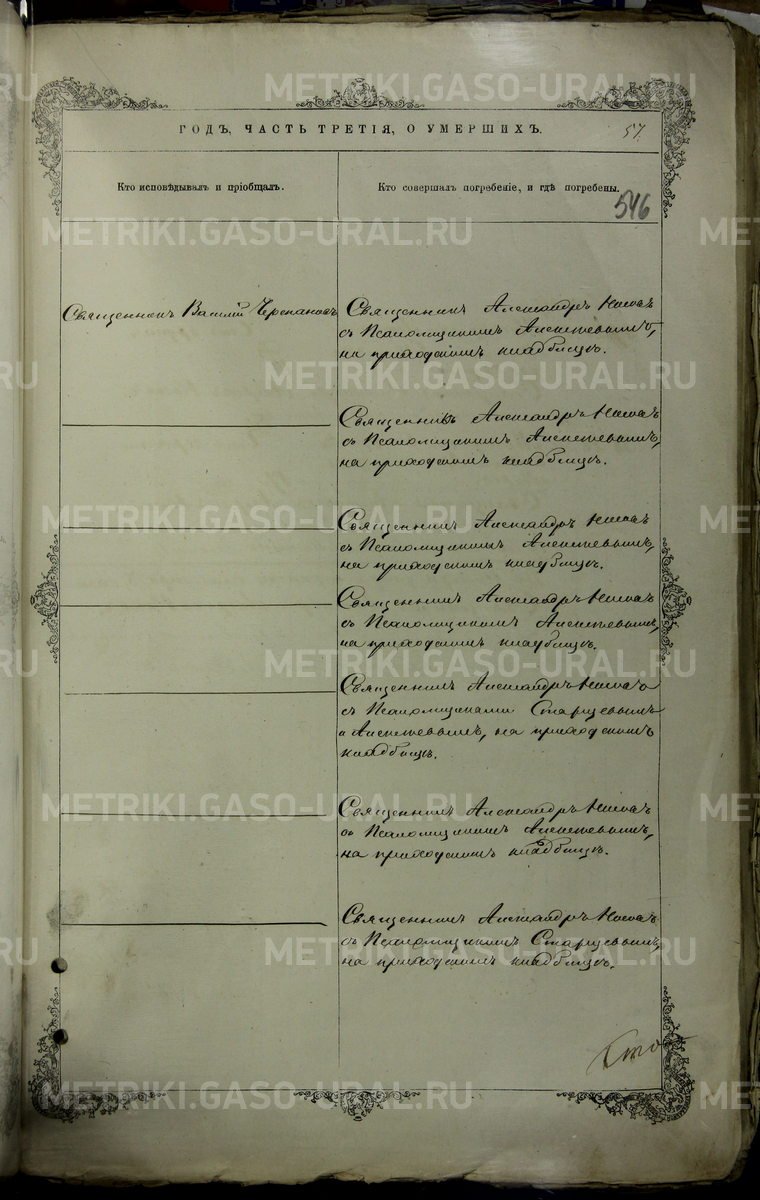 METRIKI.GASO-URAL.RU
ГОДЪ, ЧАСТЬ ТРЕТІЯ, О УМЕРШИХЪ.
57.
Кто исповѣдывалъ и пріобщалъ.
Кто совершалъ погребеніе, и гдѣ погребены.
546
Священникъ Василій Черепановъ
Священникъ Александръ
съ Псаломщикомъ Алексѣевымъ,
на приходскомъ кладбищѣ.
Священникъ Александръ
съ Псаломщикомъ Алексѣевымъ,
на приходскомъ кладбищѣ.
Священникъ Александръ
съ Псаломщикомъ Алексѣевымъ,
на приходскомъ кладбищѣ.
Священникъ Александръ
съ Псаломщикомъ Алексѣевымъ,
на приходскомъ кладбищѣ.
Священникъ Александръ
съ Псаломщиками Старцевымъ
и Алексѣевымъ, на приходскомъ
кладбищѣ.
Священникъ Александръ
съ Псаломщикомъ Алексѣевымъ,
на приходскомъ кладбищѣ.
Священникъ Александръ
съ Псаломщикомъ Старцевымъ,
на приходскомъ кладбищѣ.